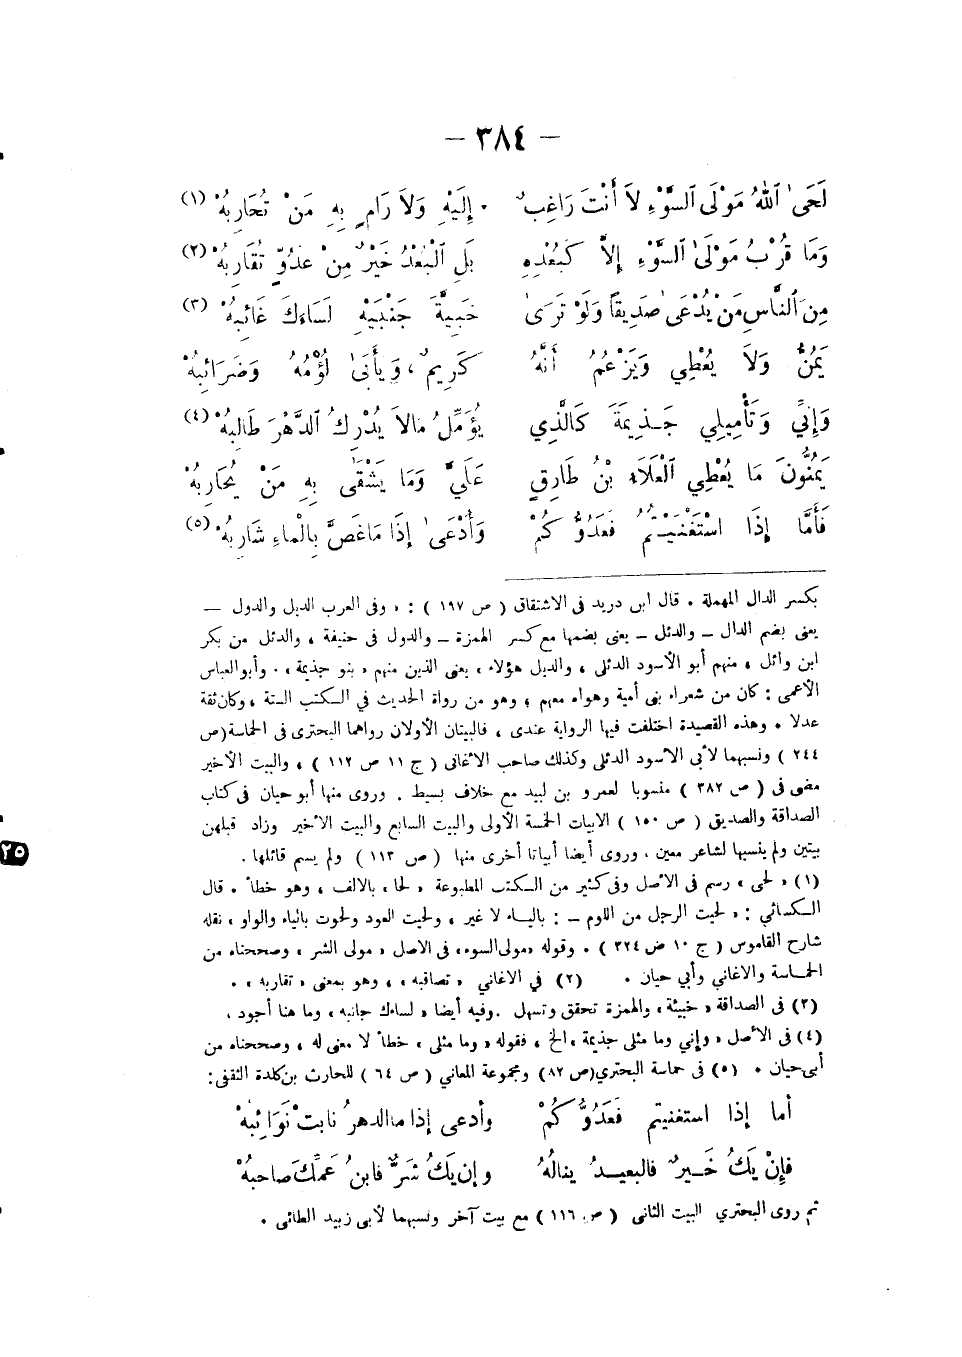 — ٣٨٤ —
لَحَى ٱللهُ مَوْلَى ٱلسَّوْءِ لاَ أَنْتَ رَاغِبٌ إِلَيْهِ وَلاَ رَامٍ بِهِ مَنْ تُحَارِبُهْ (١)
وَمَا قُرْبُ مَوْلَى ٱلسَّوْءِ إِلاَّ كَبُعْدِهِ بَلِ ٱلْبُعْدُ خَيْرٌ مِنْ عَدُوٍّ تُقَارِبُهْ (٢)
مِنَ ٱلنَّاسِ مَنْ يُدْعَى صَدِيقاً وَلَوْ تَرَى خَبِيَّةَ جَنْبَيْهِ لَسَاءَكَ غَائِبُهْ (٣)
يَمُنُّ وَلاَ يُعْطِي وَيَزْعُمُ أَنَّهُ كَرِيمٌ، وَيَأْبَى لُؤْمُهُ وَضَرَائِبُهْ
وَإِنِّي وَتَأْمِيلِي جَذِيمَةَ كَالَّذِي يُؤَمِّلُ مَالاَ يُدْرِكُ ٱلدَّهْرَ طَالِبُهْ (٤)
يَمُنُّونَ مَا يُعْطِي ٱلْعَلاَءُ بْنُ طَارِقٍ عَلَيَّ وَمَا يَشْقَى بِهِ مَنْ يُحَارِبُهْ
فَأَمَّا إِذَا اسْتَغْنَيْتُمُ فَعَدُوُّكُمْ وَأُدْعَى إِذَا مَاغَصَّ بِالْمَاءِ شَارِبُهْ (٥)
بكسر الدال المهملة . قال ابن دريد فى الاشتقاق ( ص ١٩٧ ) : « وفى العرب الديل والدول —
يعنى بضم الدال — والدئل — يعنى بضمها مع كسر الهمزة — والدول فى حنيفة ، والدئل من بكر
ابن وائل ، منهم أبو الأسود الدئلى ، والديل هؤلاء ، يعنى الذين منهم « بنو جذيمة » . وأبو العباس
الأعمى : كان من شعراء بنى أمية وهواه معهم ؛ وهو من رواة الحديث في الكتب الستة ، وكان ثقة
عدلا . وهذه القصيدة اختلفت فيها الرواية عندى ، فالبيتان الأولان رواهما البحترى فى الحماسة (ص
٢٤٤ ) ونسبهما لأبى الأسود الدئلى وكذلك صاحب الاغانى ( ج ١١ ص ١١٢ ) ، والبيت الأخير
مضى فى ( ص ٣٨٢ ) منسوبا لعمرو بن لبيد مع خلاف بسيط . وروى منها أبو حيان فى كتاب
الصداقة والصديق ( ص ١٥٠ ) الابيات الخمسة الأولى والبيت السابع والبيت الأخير وزاد قبلهن
بيتين ولم ينسبها لشاعر معين . وروى أيضا أبياتا أخرى منها ( ص ١١٣ ) ولم يسم قائلها .
(١) « لحى » رسم فى الأصل وفى كثير من الكتب المطبوعة « لحا » بالالف ، وهو خطأ . قال
الكسائي : « لحيت الرجل من اللوم — : بالياء لا غير ، ولحيت العود ولحوت بالياء والواو » نقله
شارح القاموس ( ج ١٠ ص ٣٢٤ ) . وقوله «مولى السوء» فى الاصل « مولى الشر » وصححناه من
الحماسة والاغاني وأبي حيان . (٢) في الاغاني « تصاقبه » ، وهو بمعنى « تقاربه » .
(٣) فى الصداقة « خبيئة » والهمزة تحقق وتسهل . وفيه أيضا « لساءك جانبه » وما هنا أجود .
(٤) فى الأصل « وإني وما مثلى جذيمة » الخ ، فقوله « وما مثلى » خطأ لا معنى له ، وصححناه من
أبى حيان . (٥) فى حماسة البحتري (ص ٨٢) ومجموعة المعاني ( ص ٦٤ ) للحارث بن كلدة الثقفى :
أما إذا استغنيتم فَعَدُوُّكُمْ وأدعى إذا ما الدهرُ نابتْ نَوَائِبُهْ
فإِنْ يَكُ خَيرٌ فالبعيدُ ينالُهُ وإن يَكُ شَرٌّ فابنُ عَمِّكَ صاحبُهْ
ثم روى البحتري البيت الثانى ( ص ١١٦ ) مع بيت آخر ونسبهما لأبى زبيد الطائى .
٢٥